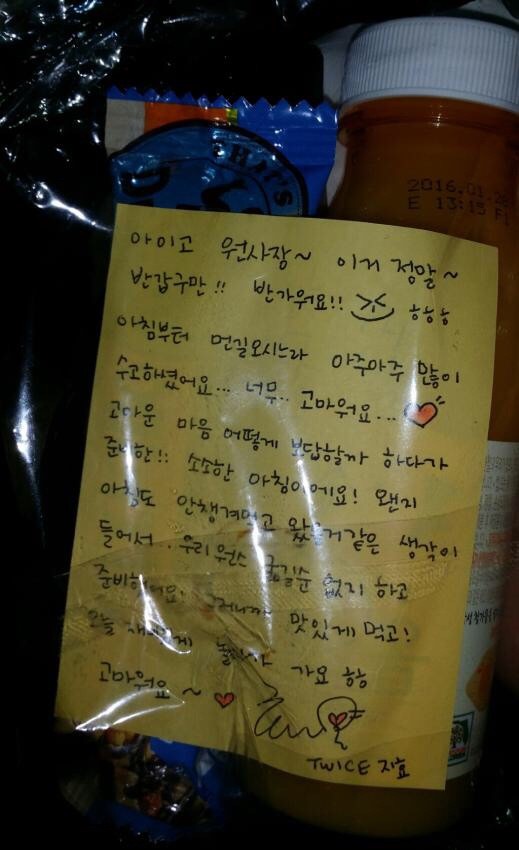 THAT'S
2016.01.28
E 13:13 F1
아이고 원사장~ 이거 정말~
반갑구만!! 반가워요!! ㅎㅎㅎ
아침부터 먼길오시느라 아주아주 많이
수고하셨어요... 너무.. 고마워요...
고마운 마음 어떻게 보답할까 하다가
준비한!! 소소한 아침이에요! 왠지
아침도 안챙겨먹고 왔을거같은 생각이
들어서.. 우리 원스 굶길순 없지 하고
준비했어요! 그러니까 맛있게 먹고!
오늘 재미있게 놀다가 가요 ㅎㅎ
고마워요~
TWICE 지효